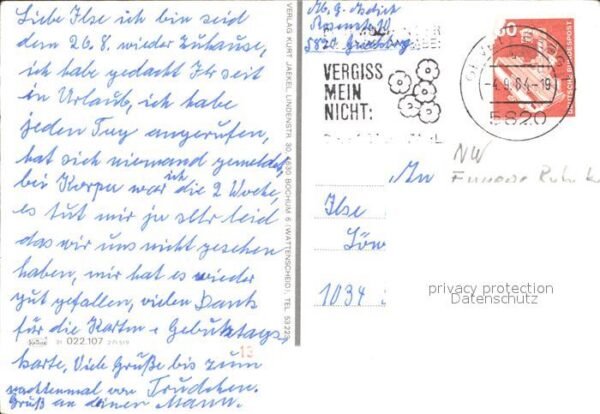 Liebe Ilse ich bin seid
dem 26.8. wieder zuhause,
ich habe gedacht Ihr seit
in Urlaub, ich habe
jeden Tag angerufen,
hat sich niemand gemeldet,
bei Korpu war ich die 2 Woche,
es tut mir ja sehr leid
das wir uns nicht gesehen
haben, mir hat es wieder
gut gefallen, vielen Dank
für die Karten + Gebuktags
karte, Viele Grüße bis zum
nachstenmal von Trudchen.
Gruß an deinen Mann.
31 022.107 211 519
VERLAG KURT JAEKEL, LINDENSTR. 30, 4630 BOCHUM 6 (WATTENSCHEID), TEL. 53 223
13
Ab. G.
5820 Gevelsberg
VERGISS
MEIN
NICHT:
60
DEUTSCHE BUNDESPOST
-4.9.84-19
5820
NW
An
Ilse
Löw
1034
privacy protection
Datenschutz